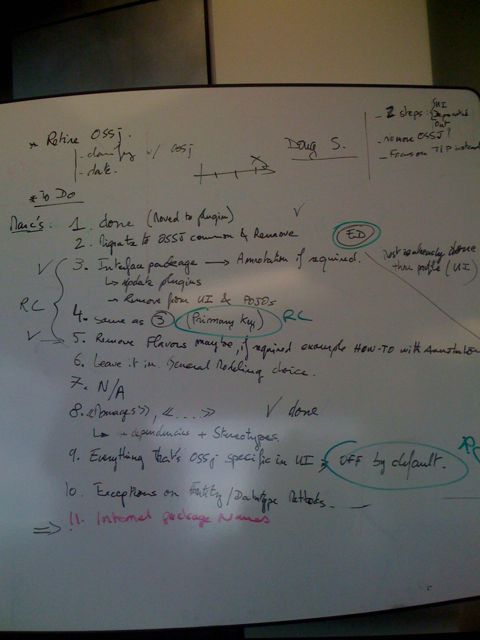 * Retire OSSj.
- clarify w/ OSSj
- date.
X
Doug S.
- 2 steps: UI
Out
- no more OSSJ?
- Focus on TIP instead
* To Do
Marc's: 1. done (Moved to plugin) √
2. Migrate to OSSJ common & Remove
ED
√ 3. Interface package → Annotation if required.
↳ update plugins
→ Remove from UI & POJOs
thru profile (UI)
RC
4. same as ③ (Primary Key) RC
√ → 5. Remove Flavors maybe, if required example HOW-TO with Annotation
6. Leave it in General Modeling choice.
7. N/A
8. «Manages», «....» √ done
↳ + dependencies + Stereotypes.
9. Everything that's OSSj specific in UI → OFF by default. RC
10. Exceptions on Entity/Datatype Methods.
⇒ 11. Internal package Names